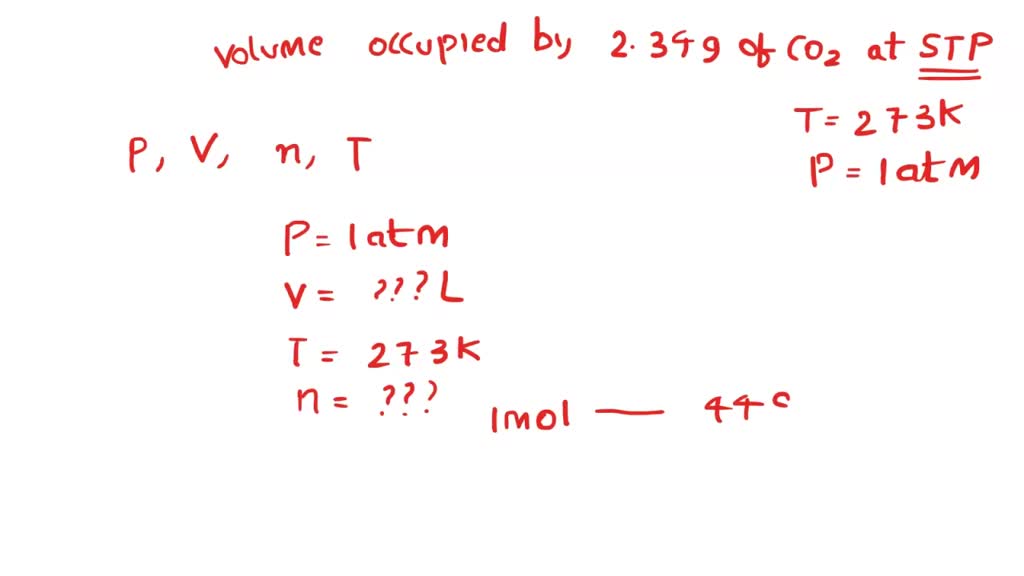 volume occupied by 2.34g of CO₂ at STP
T = 273K
P = 1atm
P, V, n, T
P = 1atm
V = ??? L
T = 273K
n = ???
1mol — 44